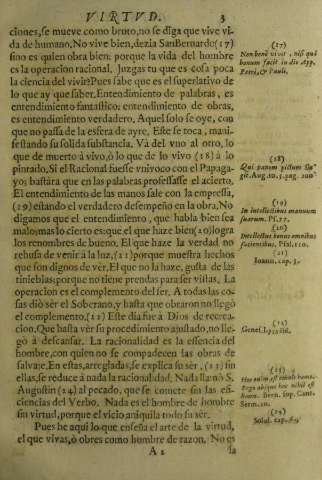 VIRTVD. 3
ciones, se mueve como bruto, no se diga que vive vi-
da de humano, No vive bien, dezia San Bernardo (17)
sino es quien obra bien: porque la vida del hombre
es la operacion racional. Juzgas tu que es cosa poca
la ciencia del vivir? Pues sabe que es el superlativo de
lo que ay que saber. Entendimiento de palabras, es
entendimiento fantastico: entendimiento de obras,
es entendimiento verdadero. Aquel solo se oye, con
que no passa de la esfera de ayre. Este se toca, mani-
festando su solida substancia. Và del vno al otro, lo
que de muerto à vivo, ò lo que de lo vivo (18) à lo
pintado. Si el Racional fuesse vnivoco con el Papaga-
yo; bastàra que en las palabras professasse el acierto.
El entendimiento de las manos sale con la empressa,
(19) estando el verdadero desempeño en la obra. No
digamos que el entendimiento, que habla bien sea
malo; mas lo cierto es: que el que haze bien (20) logra
los renombres de bueno. El que haze la verdad no
rehusa de venir à la luz, (21) porque muestra hechos
que son dignos de vèr. El que no la haze, gusta de las
tinieblas; porque no tiene prendas para ser vistas. La
operacion es el complemento del ser. A todas las co-
sas diò ser el Soberano, y hasta que obraron no llegò
el complemento, (22) Este dia fue à Dios de recrea-
cion, Que hasta vèr su procedimiento ajustado, no lle-
gò à descansar. La racionalidad es la essencia del
hombre, con quien no se compadecen las obras de
salvaje. En estas, arregladas, se explica su sèr, (23) sin
ellas, se reduce à nada la racionalidad. Nada llamò S.
Augustin (24) al pecado, que se comete sin las es-
ciencias del Verbo. Nada es el hombre de hombre
sin virtud, porque el vicio aniquila todo su sèr.
Pues he aqui lo que enseña el arte de la virtud,
el que vivas, ò obres como hombre de razon. No es
A 2 la
(17)
Non benè vivit, nisi qui
bonum facit in die App.
Petri, & Pauli.
(18)
Aug.
(19)
In intellectibus manuum
suarum. Ps. 77.
(20)
Intellectus bonus omnibus
facientibus. Psal. 110.
(21)
Ioann. cap. 3.
(22)
Genes.
(23)
Bern. sup. Cant.
Serm. 20.
(24)
Solil. cap.